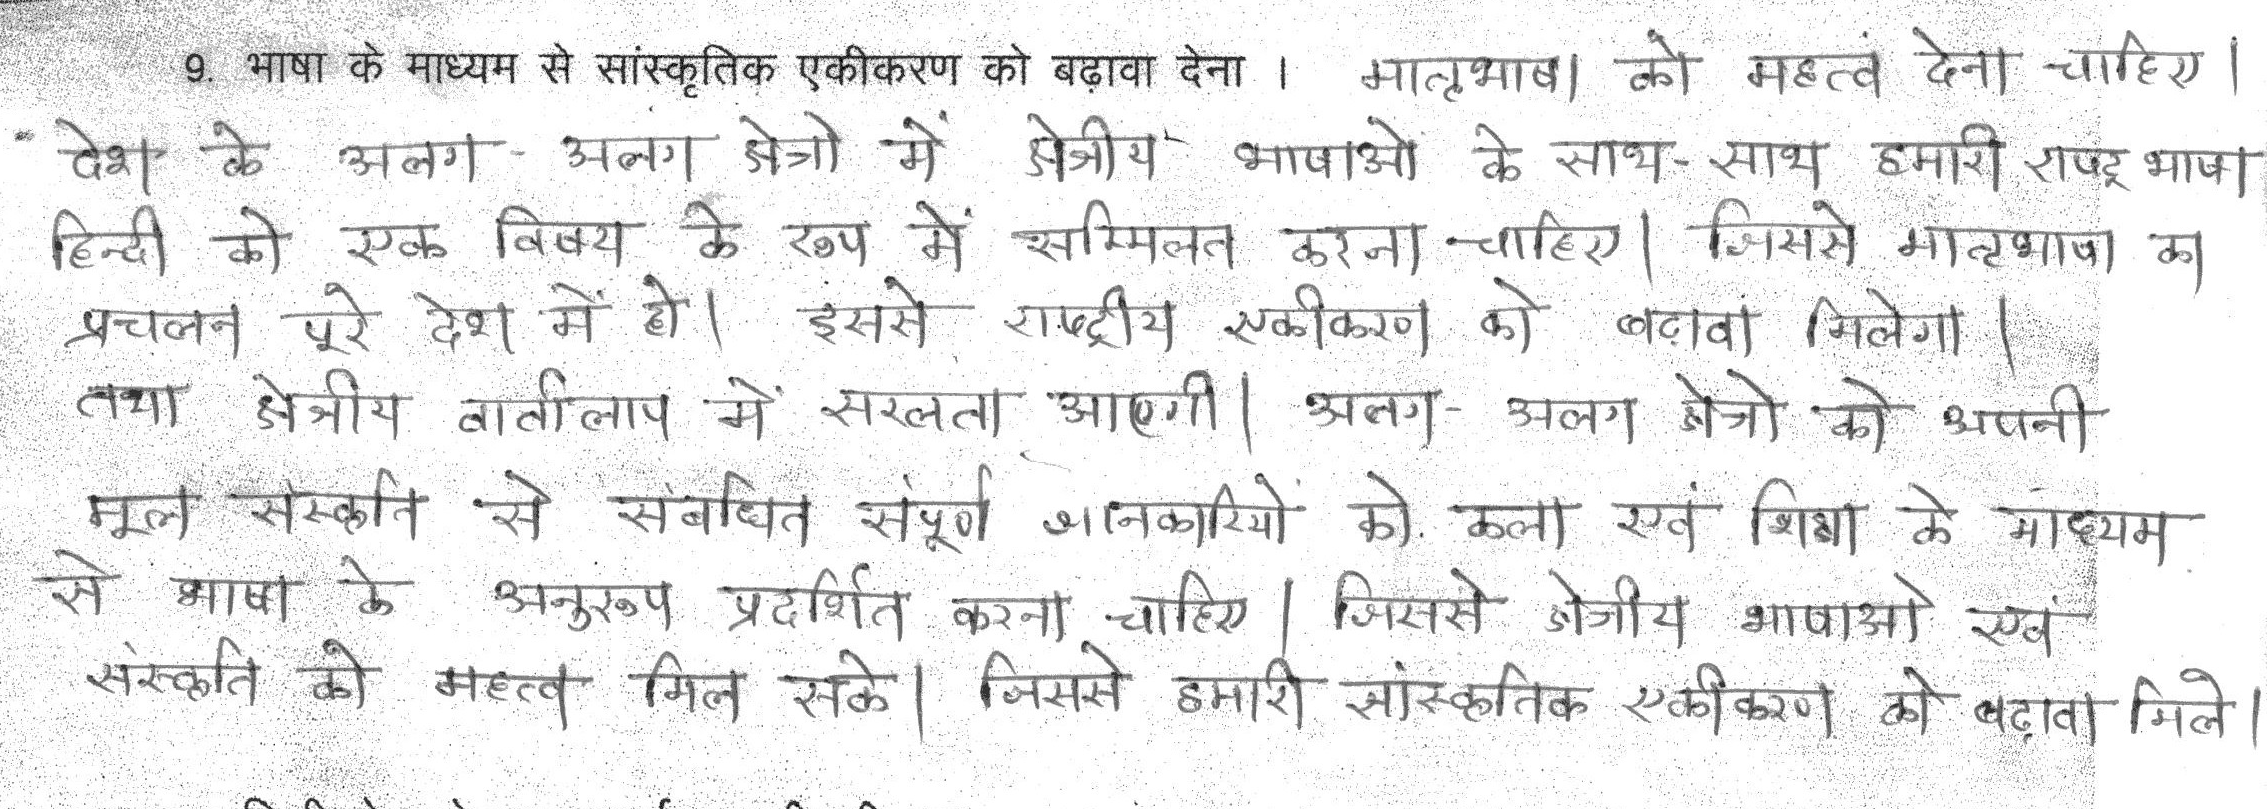 9. भाषा के माध्यम से सांस्कृतिक एकीकरण को बढ़ावा देना । मातृभाषा को महत्वं देना चाहिए।
देश के अलग - अलग क्षेत्रो में क्षेत्रीय भाषाओं के साथ-साथ हमारी राष्ट्र भाषा
हिन्दी को एक विषय के रूप में सम्मिलत करना चाहिए। जिससे मातृभाषा का
प्रचलन पूरे देश में हो। इससे राष्ट्रीय एकीकरण को बढ़ावा मिलेगा।
तथा क्षेत्रीय वार्तालाप में सरलता आएगी। अलग- अलग क्षेत्रो को अपनी
मूल संस्कृति से संबंधित संपूर्ण जानकारियों को कला एवं शिक्षा के माध्यम
से भाषा के अनुरूप प्रदर्शित करना चाहिए। जिससे क्षेत्रीय भाषाओ एवं
संस्कृति को महत्व मिल सके। जिससे हमारी सांस्कृतिक एकीकरण को बढ़ावा मिले।